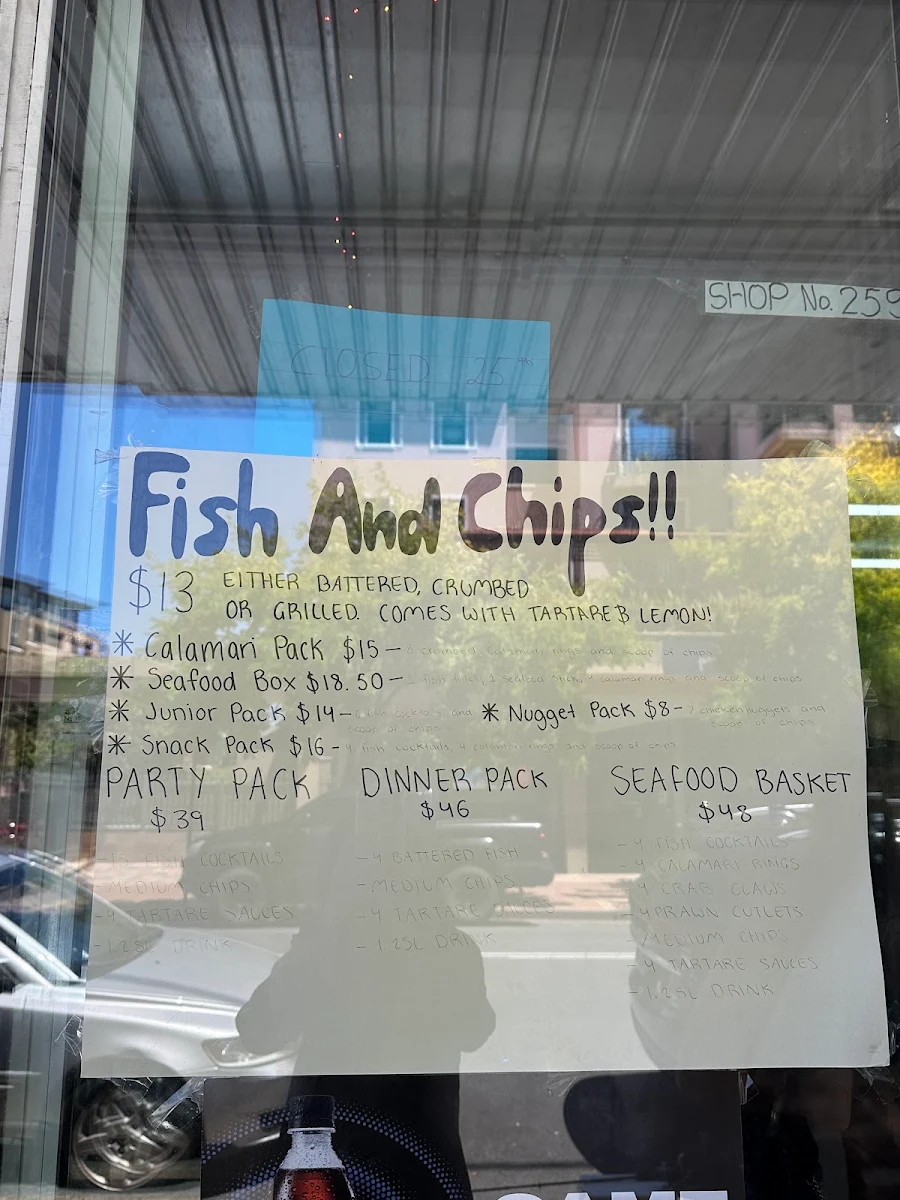 SHOP No. 259
CLOSED 25th
Fish And Chips!!
$13 EITHER BATTERED, CRUMBED
OR GRILLED. COMES WITH TARTARE & LEMON!
* Calamari Pack $15 - crumbed calamari rings and scoop of chips
* Seafood Box $18.50 - fish fillet, 1 seafood stick, calamari rings and scoop of chips
* Junior Pack $14 - fish cocktails and scoop of chips
* Nugget Pack $8 - 7 chicken nuggets and scoop of chips
* Snack Pack $16 - 4 fish cocktails, 4 calamari rings and scoop of chips
PARTY PACK
$39
FISH COCKTAILS
- MEDIUM CHIPS
- 4 TARTARE SAUCES
- 1.25L DRINK
DINNER PACK
$46
- 4 BATTERED FISH
- MEDIUM CHIPS
- 4 TARTARE SAUCES
- 1.25L DRINK
SEAFOOD BASKET
$48
- 4 FISH COCKTAILS
- 4 CALAMARI RINGS
- 4 CRAB CLAWS
- 4 PRAWN CUTLETS
- MEDIUM CHIPS
- 4 TARTARE SAUCES
- 1.25L DRINK